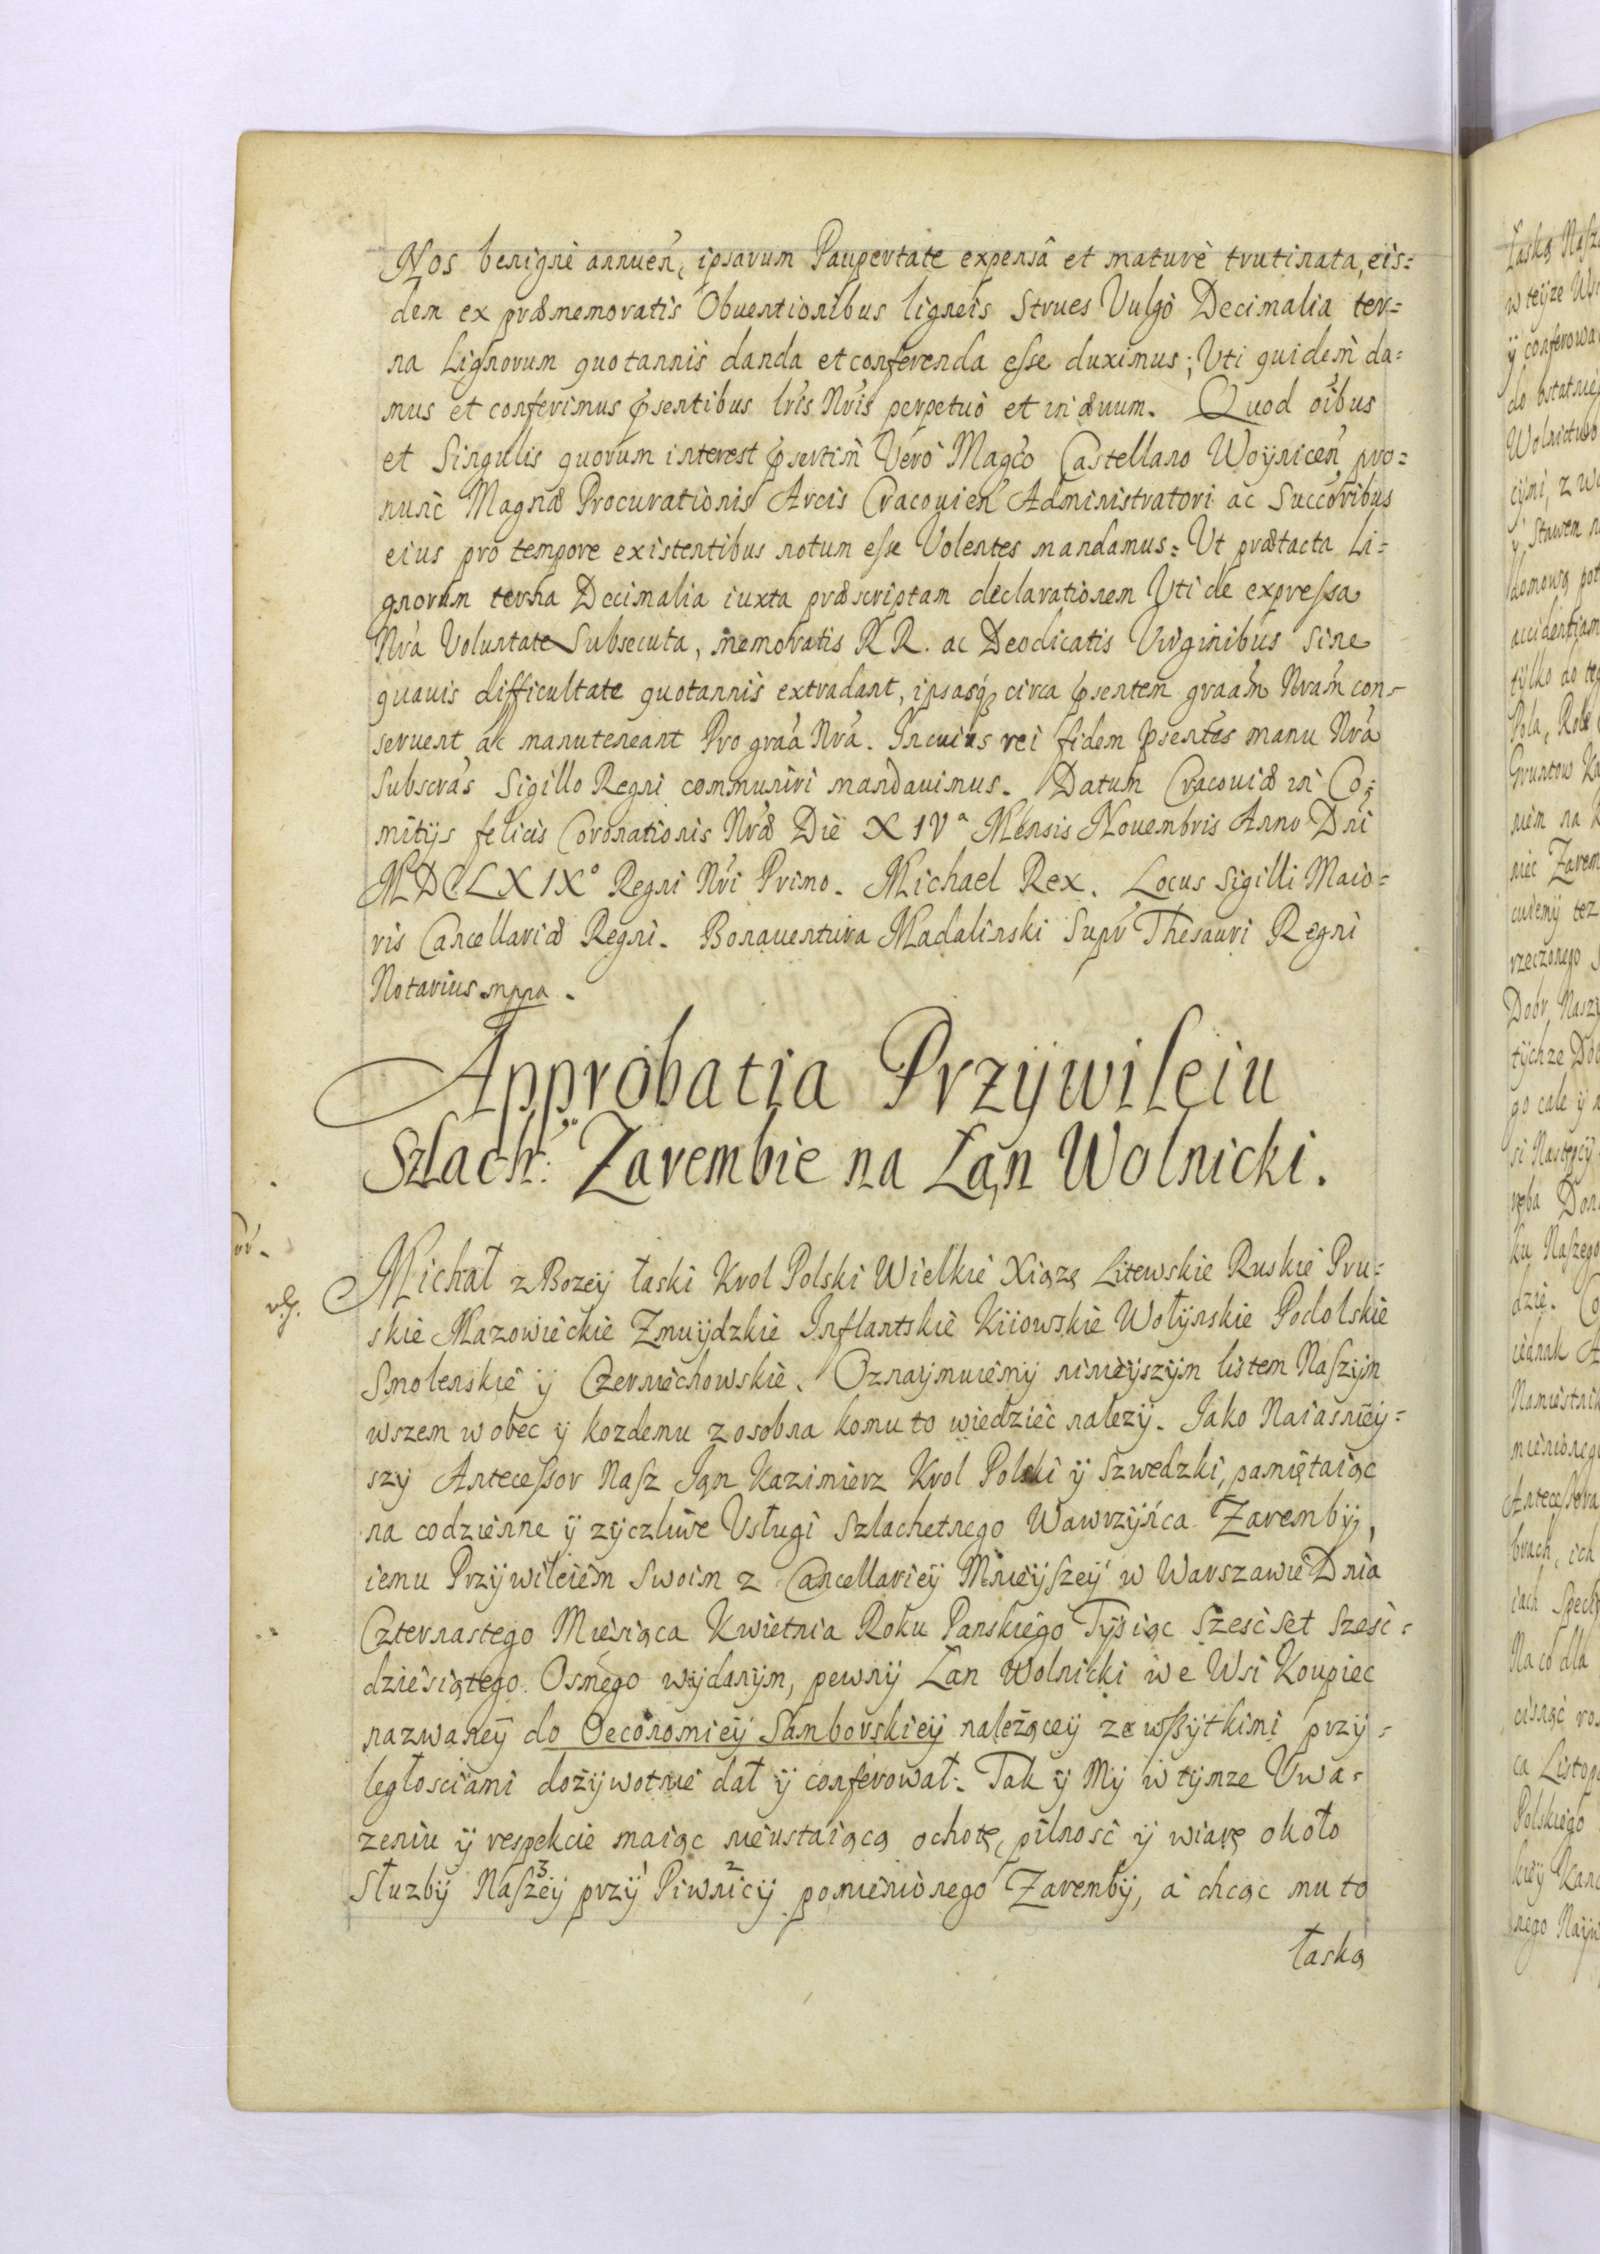 Nos benigne annuen, ipsarum Paupertate expensâ et maturè trutinata, eis=
dem ex præmemoratis Obuentionibus ligneis Strues Vulgo Decimalia ter=
na Lignorum quotannis danda et conferenda esse duximus; Vti quidem da=
mus et conferimus pñsentibus lris Nris perpetuò et in ævum. Quod oibus
et Singulis quorum interest pñsertim Verò Magco Castellano Woynicen pro=
nunc Magnæ Procurationis Arcis Cracovien Administratori ac Succoribus
eius pro tempore existentibus notum esse Volentes mandamus: Vt prætacta Li=
gnorum terna Decimalia iuxta præscriptam declarationem Vti de expressa
Nra Voluntate Subsecuta, memoratis RR. ac Deodicatis Virginibus Sine
quauis difficultate quotannis extradant, ipsasq circa pñsentem graam Nram con-
seruent ac manuteneant Pro graa Nra. In cuius rei fidem pñsentes manu Nra
Subscras Sigillo Regni communiri mandauimus. Datum Cracouiæ in Co=
mitijs felicis Coronationis Nræ Die XIVa Mensis Nouembris Anno Dni
MDCLXIXo Regni Nri Primo. Michael Rex. Locus Sigilli Maio=
ris Cancellariæ Regni. Bonauentura Madalinski Supr Thesauri Regni
Notarius mppa.
Approbatia Przÿwileiu
Szlach: Zarembie na Łan Wolnicki.
Michał z Bozey łaski Krol Polski Wielkie Xiąze Litewskie Ruskie Pru=
skie Mazowieckie Zmuÿdzkie Inflantskie Kiiowskie Wołÿnskie Podolskie
Smolenskie ÿ Czerniechowskie. Oznaÿmuiemy ninieÿszÿm listem Naszÿm
wszem wobec y kozdemu zosobna komu to wiedzieć nalezÿ. Jako Naiasniey=
szy Antecessor Nasz Jan Kazimierz Krol Polski ÿ Szwedzki, pamiętaiąc
na codzienne ÿ zÿczliwe Vsługi Szlachetnego Wawrzÿńca Zarembÿ,
iemu Przÿwileiem Swoim z Cancellarieÿ Mnieÿszeÿ w Warszawie Dnia
Czternastego Miesiąca Kwietnia Roku Panskiego Tÿsiąc Szesćset Szesc=
dziesiątego Osmego wÿdanÿm, pewnÿ Łan Wolnicki we Wsi Koupiec
nazwaneÿ do Oeconomieÿ Samborskieÿ należąceÿ ze wszÿtkimi przÿ=
ległosciami dożÿwotnie dał ÿ conferował. Tak ÿ Mÿ w tÿmze Vwa=
zeniu ÿ respekcie maiąc nieustaiącą ochotę, pilność ÿ wiarę około
Służbÿ Naszeÿ3 przÿ Piwnicÿ2 pomienionego Zarembÿ, a chcąc mu to
łaską